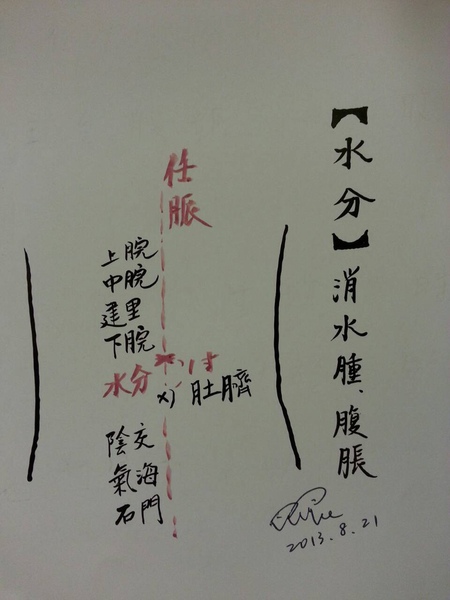 【水分】消水腫、腹脹
任脈
上脘
中脘
建里
下脘
水分
肚臍
陰交
氣海
石門
2013.8.21